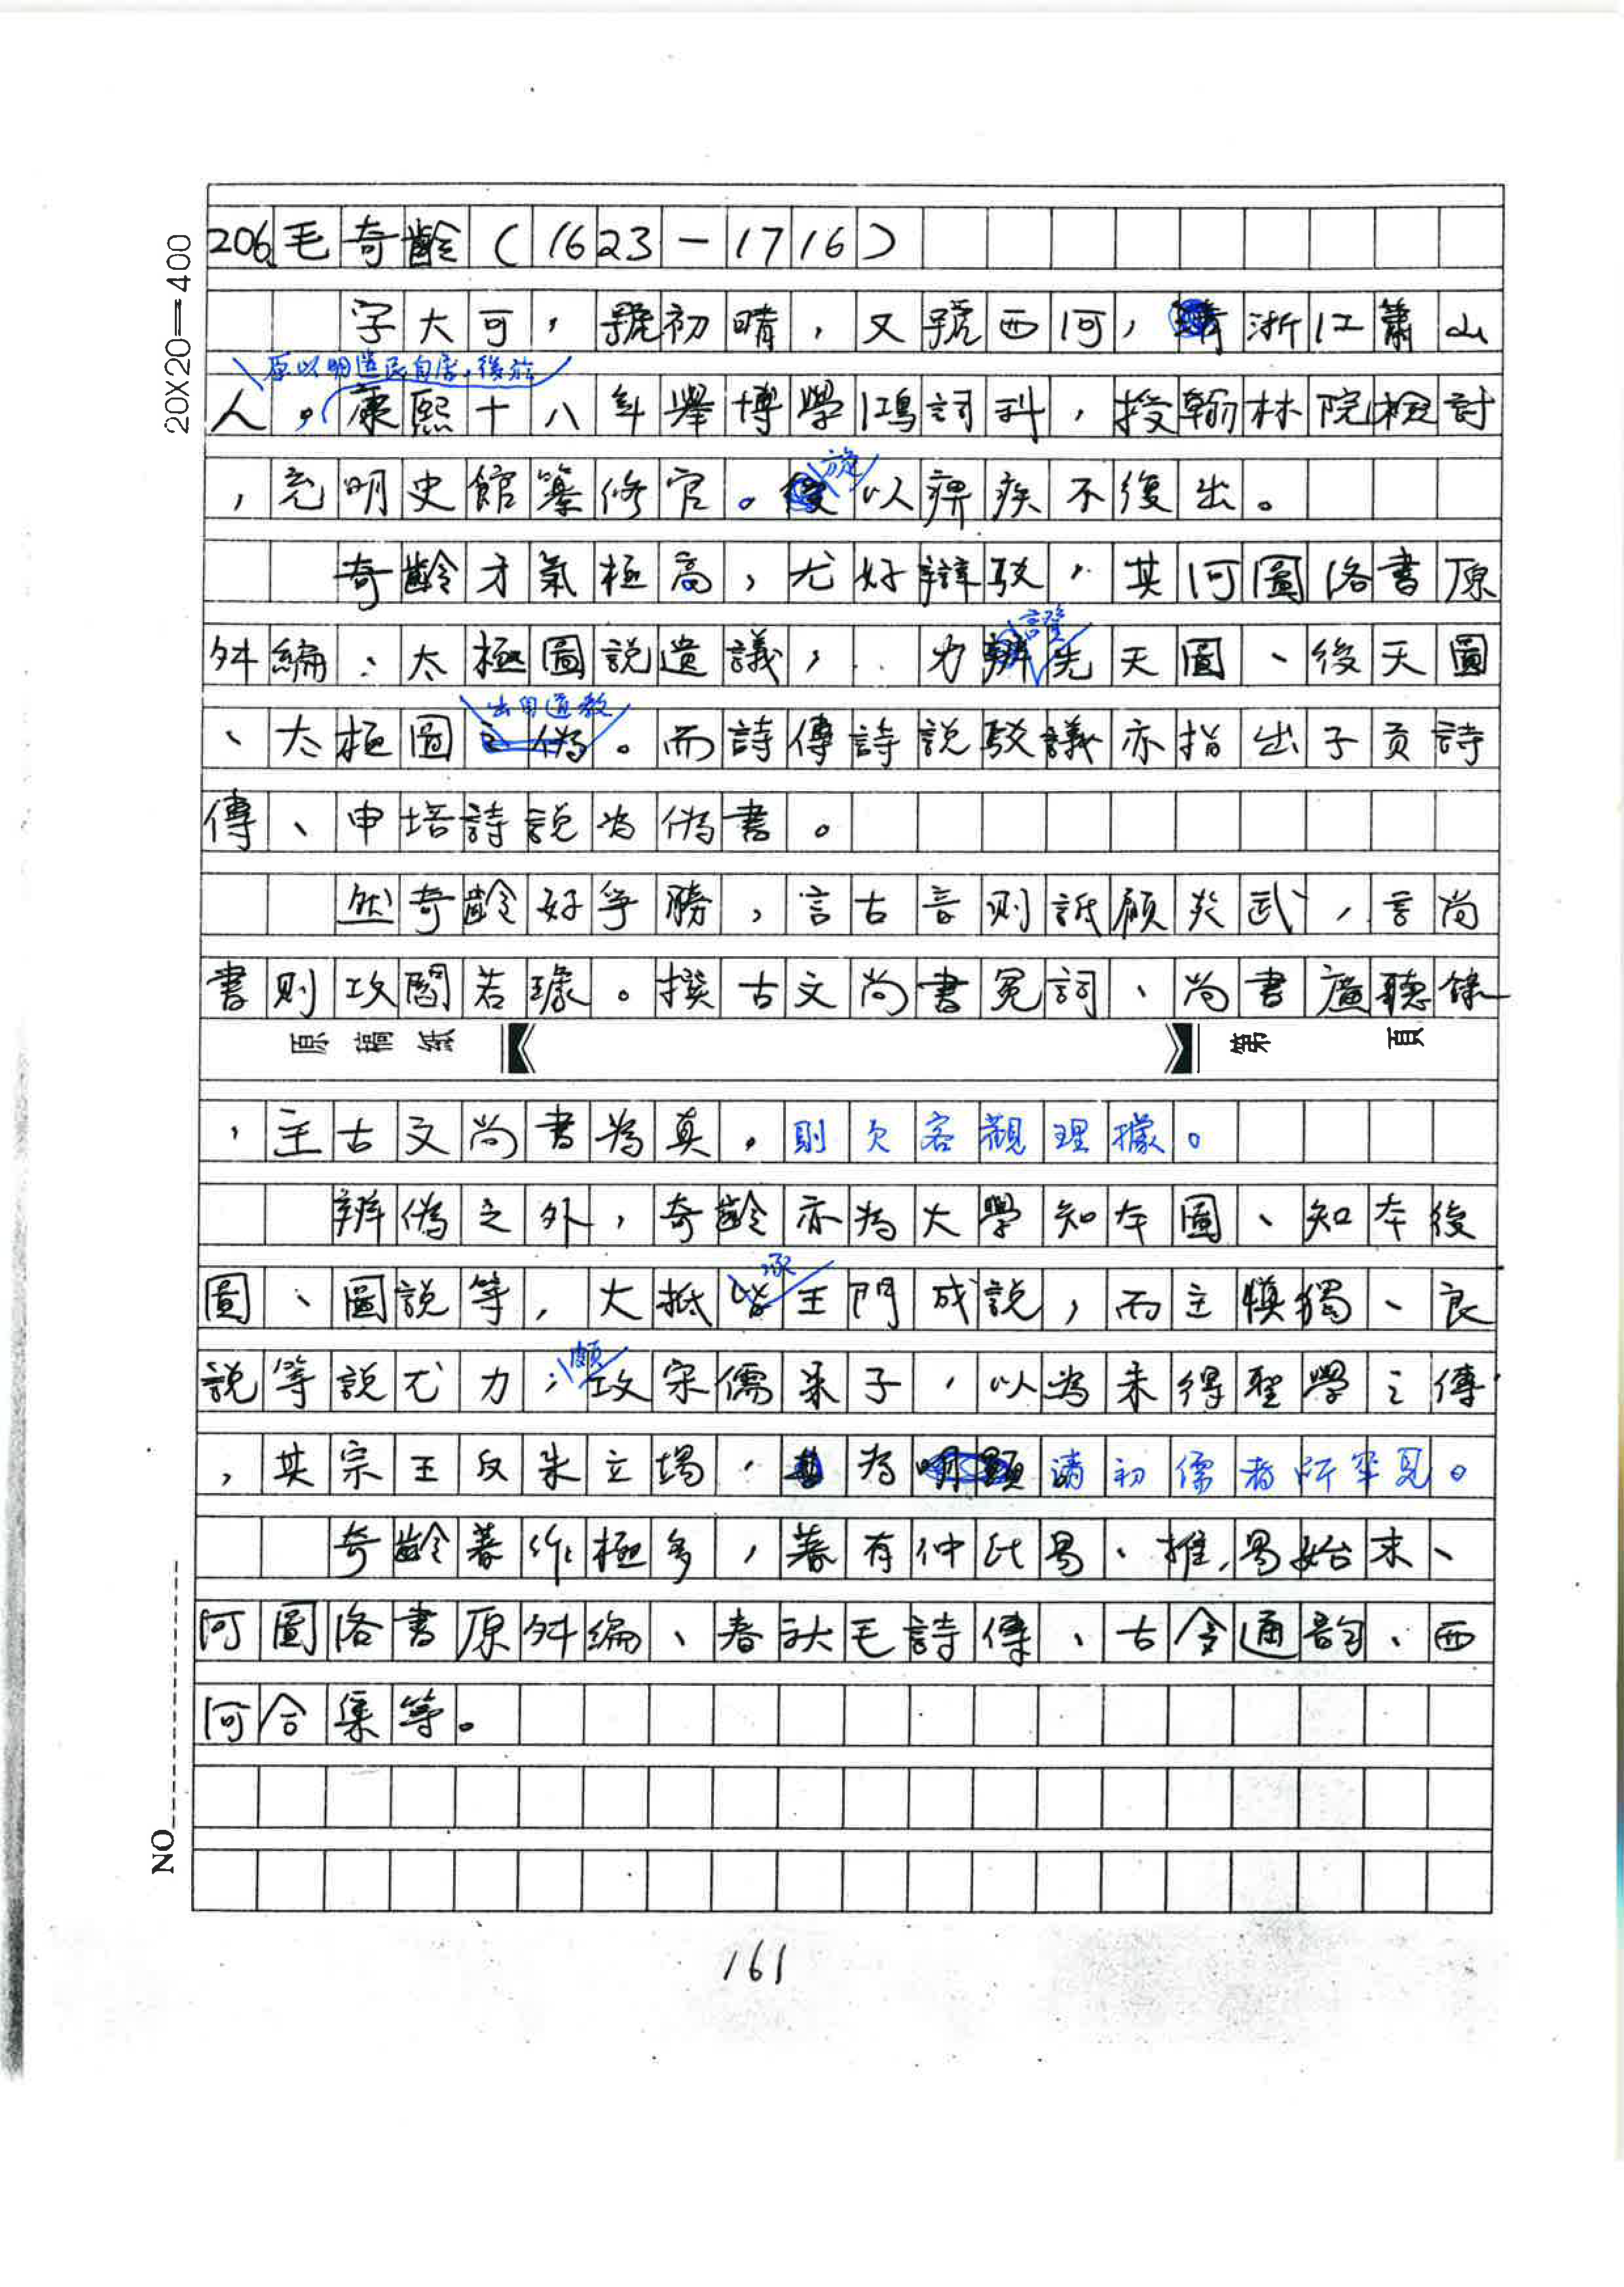 20X20=400
206.毛奇齡(1623-1716)
字大可,號初晴,又號西河,浙江蕭山
原以明遺民自居,後於
人,康熙十八年舉博學鴻詞科,授翰林院檢討
,充明史館纂修官。旋以痺疾不復出。
奇齡才氣極高,尤好辯駁,其河圖洛書原
舛編、太極圖說遺議,力證先天圖、後天圖
、太極圖出自道教。而詩傳詩說駁議亦指出子貢詩
傳、申培詩說為偽書。
然奇齡好爭勝,言古音則詆顧炎武,言尚
書則攻閻若璩。撰古文尚書冤詞、尚書廣聽錄
原稿紙 第 頁
,主古文尚書為真,則欠客觀理據。
辨偽之外,奇齡亦為大學知本圖、知本後
圖、圖說等,大抵皆承王門成說,而主慎獨、良
說等說尤力,頗攻宋儒朱子,以為未得聖學之傳
,其宗王反朱立場,為清初儒者所罕見。
奇齡著作極多,著有仲氏易、推易始末、
河圖洛書原舛編、春秋毛詩傳、古今通韵、西
河合集等。
NO
161